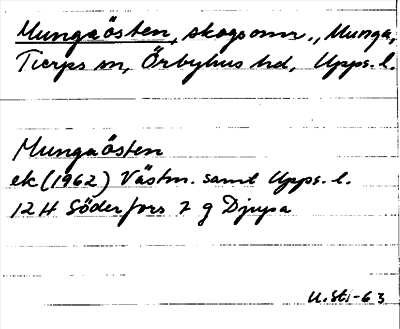 Mungaösten, skogsomr., Munga,
Tierps sn, Örbyhus hd, Upps. l.
Mungaösten
ek (1962) Västm. samt Upps. l.
12 H Söderfors 7 g Djupa
U.Stj-63